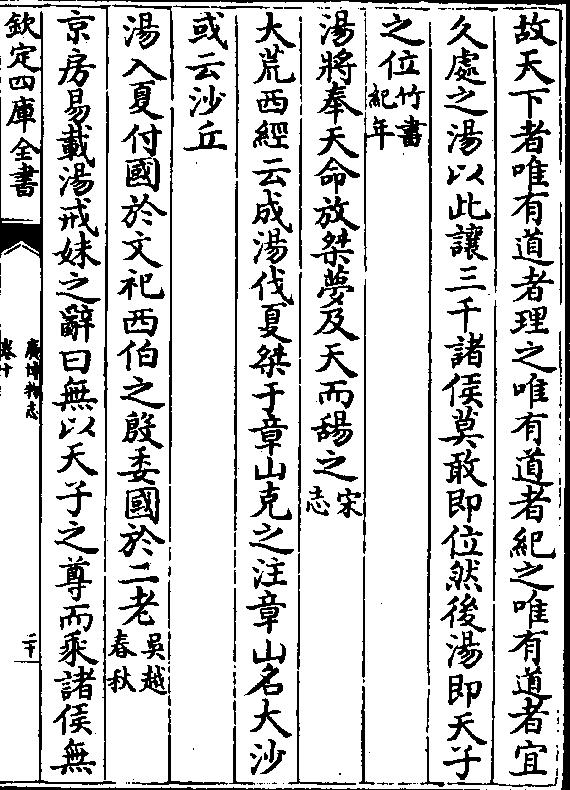 故天下者唯有道者理之唯有道者紀之唯有道者宜
久處之湯以此讓三千諸侯莫敢即位然後湯即天子
之位竹書紀年
湯將奉天命放桀夢及天而䑛之宋志
大荒西經云成湯伐夏桀于章山克之注章山名大沙
或云沙丘
湯入夏付國於文祀西伯之殷委國於二老吳越春秋
京房易載湯戒妹之辭曰無以天子之尊而乘諸侯無
欽定四庫全書
廣博物志
卷十
二十